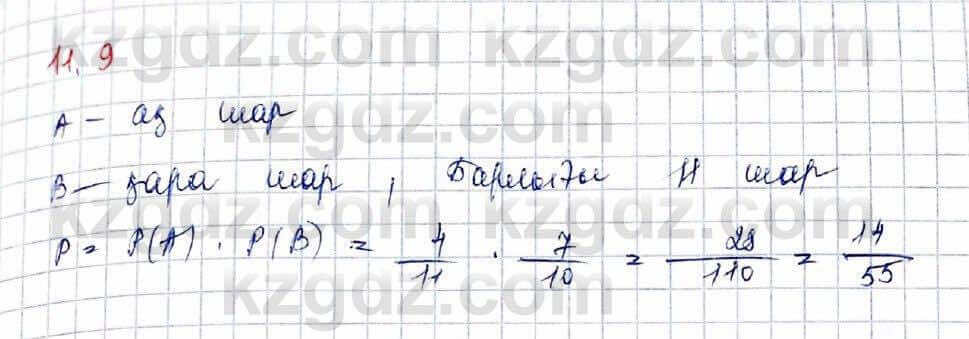 kzgdz.com kzgdz.com
11.9
A – ақ шар
kzgdz.com kzgdz.com
B – қара шар, Барлығы 11 шар
kzgdz.com kzgdz.com
P = P(A) · P(B) = 4/11 · 7/10 = 28/110 = 14/55
kzgdz.com kzgdz.com